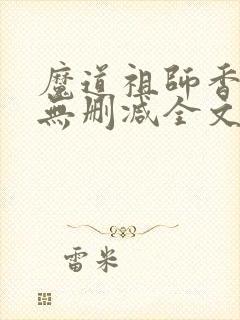 魔道祖師香
無刪減全文
雷米